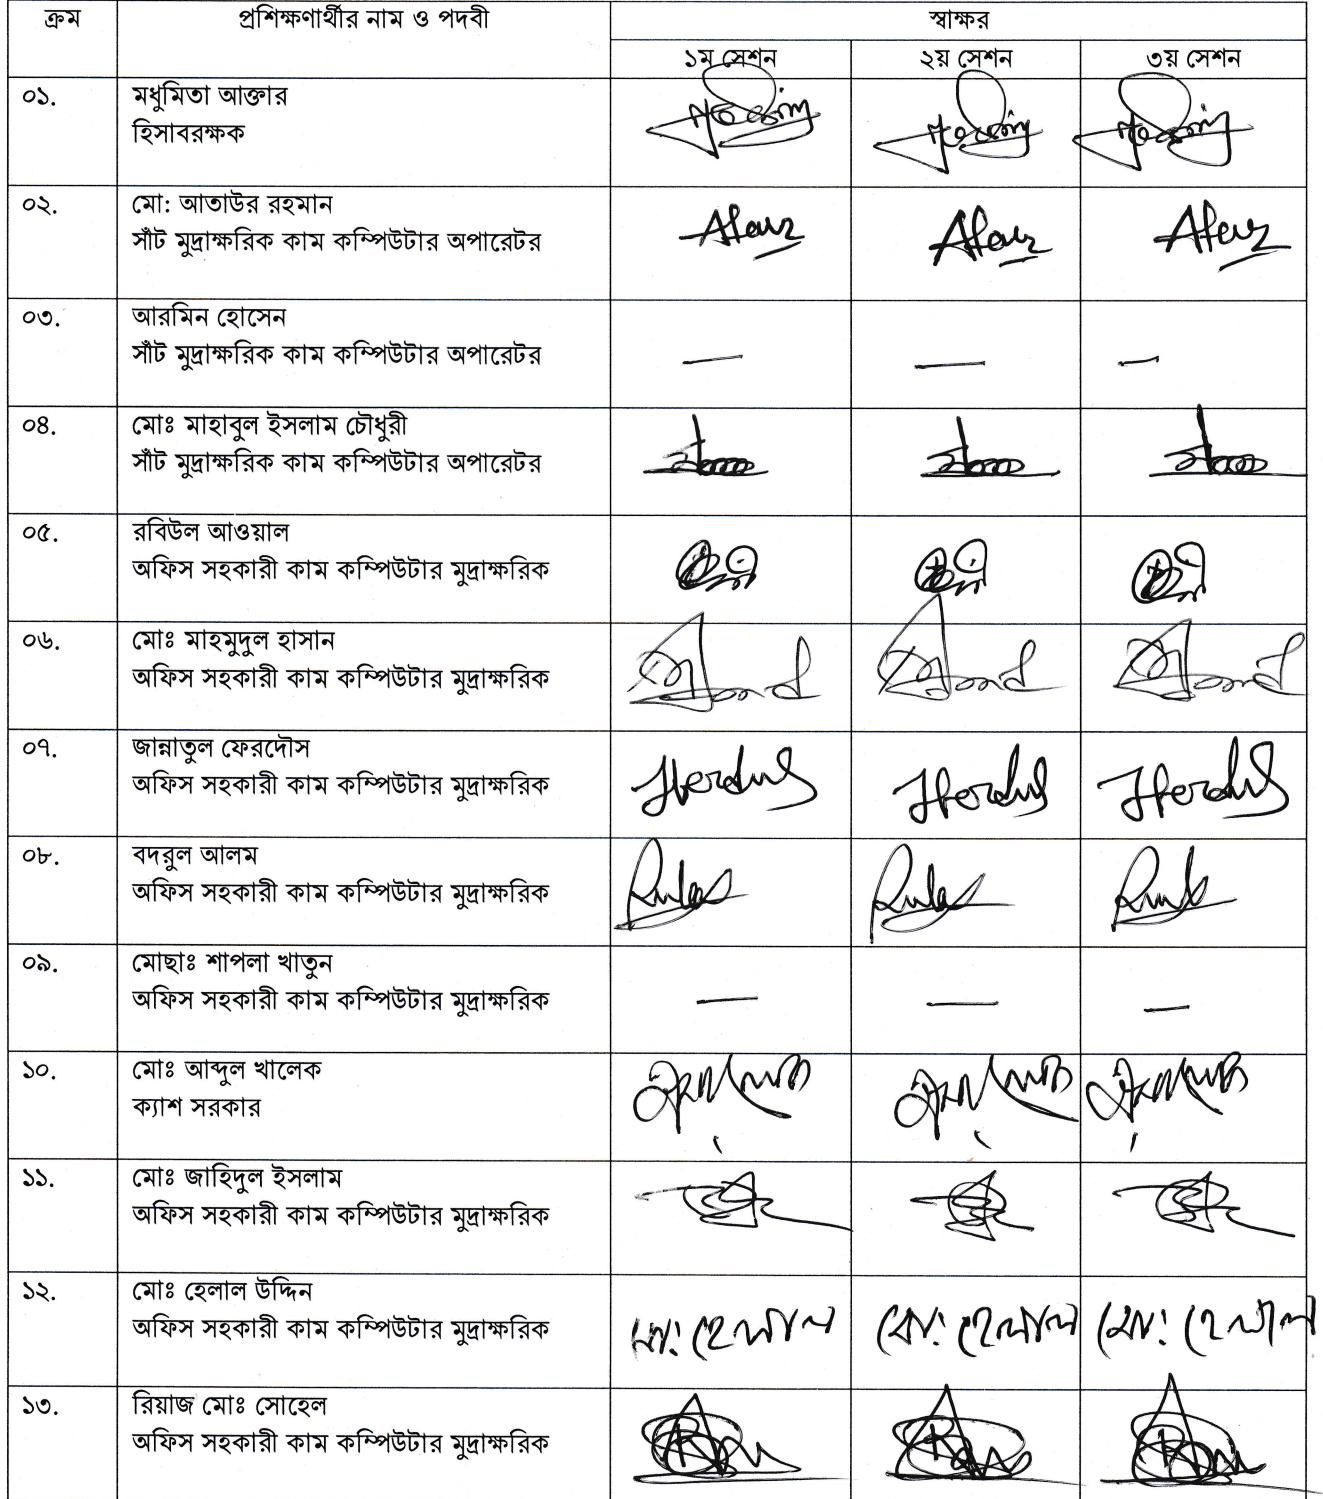 ক্রম প্রশিক্ষণার্থীর নাম ও পদবী স্বাক্ষর
১ম সেশন ২য় সেশন ৩য় সেশন
০১. মধুমিতা আক্তার
হিসাবরক্ষক
০২. মো: আতাউর রহমান
সাঁট মুদ্রাক্ষরিক কাম কম্পিউটার অপারেটর
০৩. আরমিন হোসেন
সাঁট মুদ্রাক্ষরিক কাম কম্পিউটার অপারেটর
— — —
০৪. মোঃ মাহাবুল ইসলাম চৌধুরী
সাঁট মুদ্রাক্ষরিক কাম কম্পিউটার অপারেটর
০৫. রবিউল আওয়াল
অফিস সহকারী কাম কম্পিউটার মুদ্রাক্ষরিক
০৬. মোঃ মাহমুদুল হাসান
অফিস সহকারী কাম কম্পিউটার মুদ্রাক্ষরিক
০৭. জান্নাতুল ফেরদৌস
অফিস সহকারী কাম কম্পিউটার মুদ্রাক্ষরিক
০৮. বদরুল আলম
অফিস সহকারী কাম কম্পিউটার মুদ্রাক্ষরিক
০৯. মোছাঃ শাপলা খাতুন
অফিস সহকারী কাম কম্পিউটার মুদ্রাক্ষরিক
— — —
১০. মোঃ আব্দুল খালেক
ক্যাশ সরকার
১১. মোঃ জাহিদুল ইসলাম
অফিস সহকারী কাম কম্পিউটার মুদ্রাক্ষরিক
১২. মোঃ হেলাল উদ্দিন
অফিস সহকারী কাম কম্পিউটার মুদ্রাক্ষরিক মো: হেলাল মো: হেলাল মো: হেলাল
১৩. রিয়াজ মোঃ সোহেল
অফিস সহকারী কাম কম্পিউটার মুদ্রাক্ষরিক